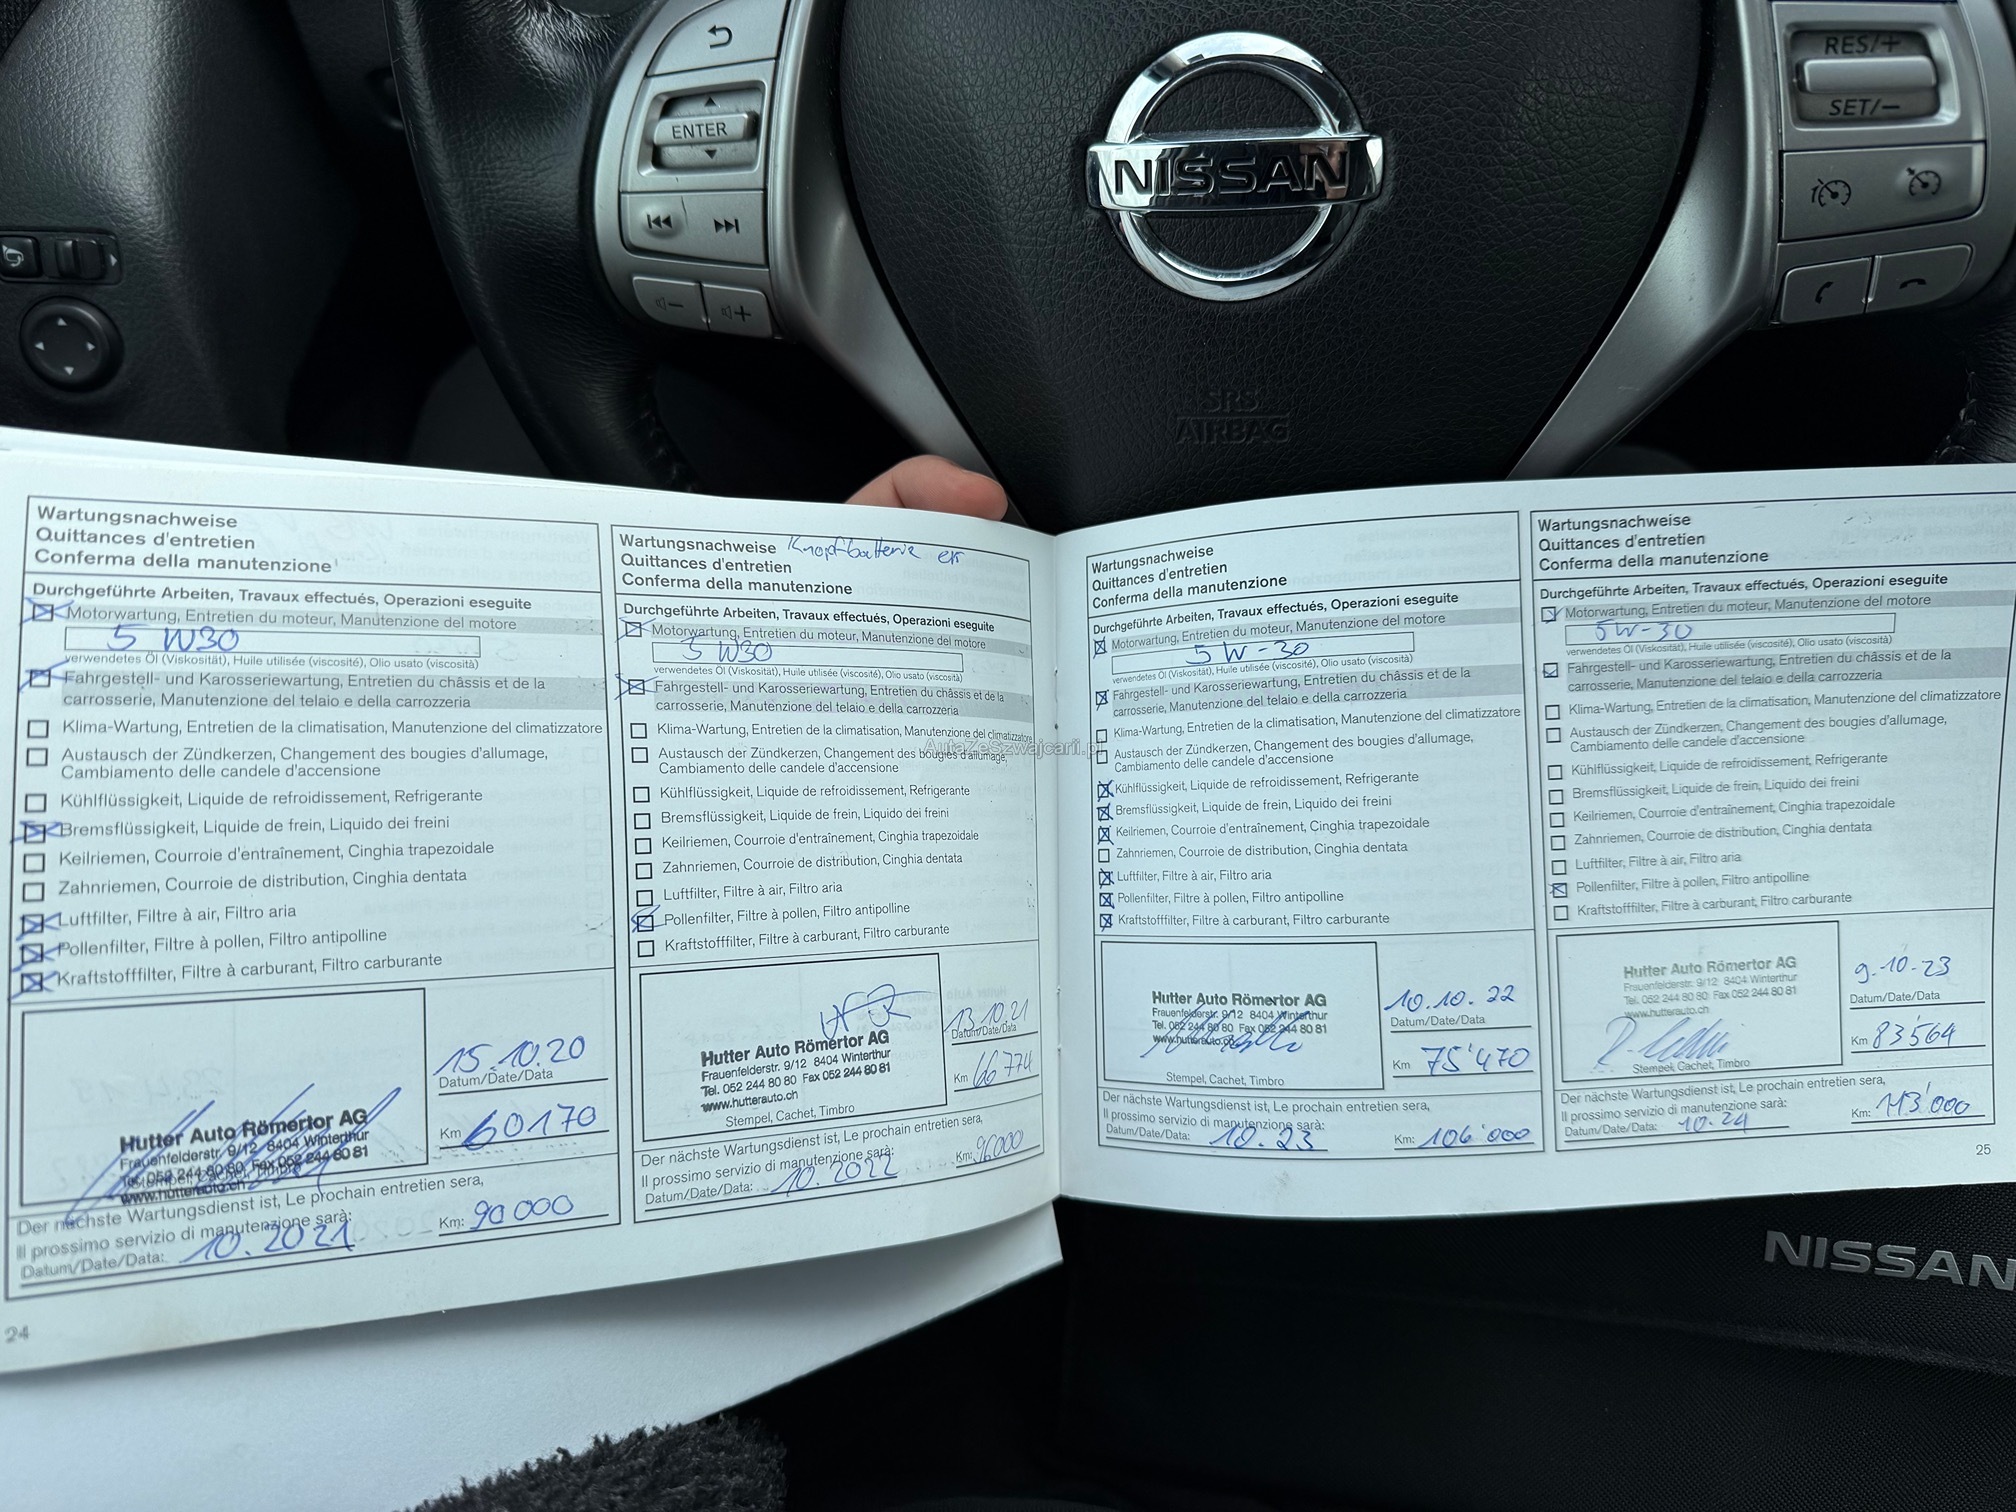 ENTER
NISSAN
RES/+
SET/−
SRS
AIRBAG
Wartungsnachweise
Quittances d'entretien
Conferma della manutenzione
Durchgeführte Arbeiten, Travaux effectués, Operazioni eseguite
Motorwartung, Entretien du moteur, Manutenzione del motore
5 W30
verwendetes Öl (Viskosität), Huile utilisée (viscosité), Olio usato (viscosità)
Fahrgestell- und Karosseriewartung, Entretien du châssis et de la
carrosserie, Manutenzione del telaio e della carrozzeria
Klima-Wartung, Entretien de la climatisation, Manutenzione del climatizzatore
Austausch der Zündkerzen, Changement des bougies d'allumage,
Cambiamento delle candele d'accensione
Kühlflüssigkeit, Liquide de refroidissement, Refrigerante
Bremsflüssigkeit, Liquide de frein, Liquido dei freini
Keilriemen, Courroie d'entraînement, Cinghia trapezoidale
Zahnriemen, Courroie de distribution, Cinghia dentata
Luftfilter, Filtre à air, Filtro aria
Pollenfilter, Filtre à pollen, Filtro antipolline
Kraftstofffilter, Filtre à carburant, Filtro carburante
15.10.20
Datum/Date/Data
Km 60170
Hutter Auto Römertor AG
Frauenfelderstr. 9/12 8404 Winterthur
Tel. 052 244 80 80 Fax 052 244 80 81
www.hutterauto.ch
Der nächste Wartungsdienst ist, Le prochain entretien sera,
Il prossimo servizio di manutenzione sarà:
Datum/Date/Data: 10.2021 Km: 90000
24
Wartungsnachweise Knopfbatterie
Quittances d'entretien
Conferma della manutenzione
Durchgeführte Arbeiten, Travaux effectués, Operazioni eseguite
Motorwartung, Entretien du moteur, Manutenzione del motore
5 W30
verwendetes Öl (Viskosität), Huile utilisée (viscosité), Olio usato (viscosità)
Fahrgestell- und Karosseriewartung, Entretien du châssis et de la
carrosserie, Manutenzione del telaio e della carrozzeria
Klima-Wartung, Entretien de la climatisation, Manutenzione del climatizzatore
AutaZeSzwajcarii.pl
Austausch der Zündkerzen, Changement des bougies d'allumage,
Cambiamento delle candele d'accensione
Kühlflüssigkeit, Liquide de refroidissement, Refrigerante
Bremsflüssigkeit, Liquide de frein, Liquido dei freini
Keilriemen, Courroie d'entraînement, Cinghia trapezoidale
Zahnriemen, Courroie de distribution, Cinghia dentata
Luftfilter, Filtre à air, Filtro aria
Pollenfilter, Filtre à pollen, Filtro antipolline
Kraftstofffilter, Filtre à carburant, Filtro carburante
13.10.21
Datum/Date/Data
Hutter Auto Römertor AG
Frauenfelderstr. 9/12 8404 Winterthur
Tel. 052 244 80 80 Fax 052 244 80 81
www.hutterauto.ch
Km 66774
Stempel, Cachet, Timbro
Der nächste Wartungsdienst ist, Le prochain entretien sera,
Il prossimo servizio di manutenzione sarà:
Datum/Date/Data: 10.2022 Km: 96000
Wartungsnachweise
Quittances d'entretien
Conferma della manutenzione
Durchgeführte Arbeiten, Travaux effectués, Operazioni eseguite
Motorwartung, Entretien du moteur, Manutenzione del motore
5W-30
verwendetes Öl (Viskosität), Huile utilisée (viscosité), Olio usato (viscosità)
Fahrgestell- und Karosseriewartung, Entretien du châssis et de la
carrosserie, Manutenzione del telaio e della carrozzeria
Klima-Wartung, Entretien de la climatisation, Manutenzione del climatizzatore
Austausch der Zündkerzen, Changement des bougies d'allumage,
Cambiamento delle candele d'accensione
Kühlflüssigkeit, Liquide de refroidissement, Refrigerante
Bremsflüssigkeit, Liquide de frein, Liquido dei freini
Keilriemen, Courroie d'entraînement, Cinghia trapezoidale
Zahnriemen, Courroie de distribution, Cinghia dentata
Luftfilter, Filtre à air, Filtro aria
Pollenfilter, Filtre à pollen, Filtro antipolline
Kraftstofffilter, Filtre à carburant, Filtro carburante
Hutter Auto Römertor AG
Frauenfelderstr. 9/12 8404 Winterthur
Tel. 052 244 80 80 Fax 052 244 80 81
www.hutterauto.ch
10.10.22
Datum/Date/Data
Km 75'470
Stempel, Cachet, Timbro
Der nächste Wartungsdienst ist, Le prochain entretien sera,
Il prossimo servizio di manutenzione sarà:
Datum/Date/Data: 10.23 Km: 106'000
Wartungsnachweise
Quittances d'entretien
Conferma della manutenzione
Durchgeführte Arbeiten, Travaux effectués, Operazioni eseguite
Motorwartung, Entretien du moteur, Manutenzione del motore
5W-30
verwendetes Öl (Viskosität), Huile utilisée (viscosité), Olio usato (viscosità)
Fahrgestell- und Karosseriewartung, Entretien du châssis et de la
carrosserie, Manutenzione del telaio e della carrozzeria
Klima-Wartung, Entretien de la climatisation, Manutenzione del climatizzatore
Austausch der Zündkerzen, Changement des bougies d'allumage,
Cambiamento delle candele d'accensione
Kühlflüssigkeit, Liquide de refroidissement, Refrigerante
Bremsflüssigkeit, Liquide de frein, Liquido dei freini
Keilriemen, Courroie d'entraînement, Cinghia trapezoidale
Zahnriemen, Courroie de distribution, Cinghia dentata
Luftfilter, Filtre à air, Filtro aria
Pollenfilter, Filtre à pollen, Filtro antipolline
Kraftstofffilter, Filtre à carburant, Filtro carburante
Hutter Auto Römertor AG
Frauenfelderstr. 9/12 8404 Winterthur
Tel. 052 244 80 80 Fax 052 244 80 81
www.hutterauto.ch
9.10.23
Datum/Date/Data
Km 83'564
Stempel, Cachet, Timbro
Der nächste Wartungsdienst ist, Le prochain entretien sera,
Il prossimo servizio di manutenzione sarà:
Datum/Date/Data: 10.24 Km: 113'000
25
NISSAN